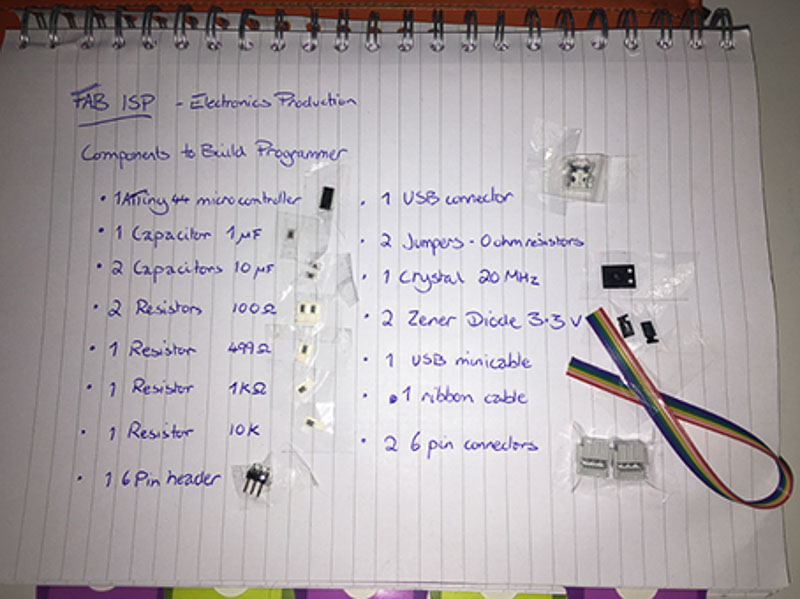 FAB ISP - Electronics Production
Components to Build Programmer
• 1 ATtiny 44 microcontroller
• 1 Capacitor 1µF
• 2 Capacitors 10µF
• 2 Resistors 100Ω
• 1 Resistor 499Ω
• 1 Resistor 1KΩ
• 1 Resistor 10K
• 1 6 Pin header
• 1 USB connector
• 2 Jumpers - 0 ohm resistors
• 1 Crystal 20 MHz
• 2 Zener Diode 3.3 V
• 1 USB minicable
• 1 ribbon cable
• 2 6 pin connectors